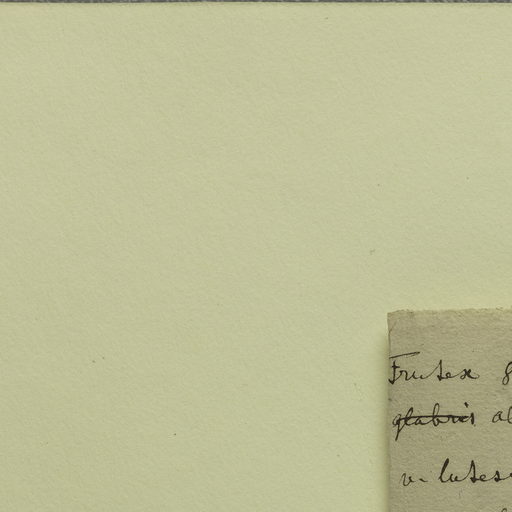 Frutex
glabris
v. lutes